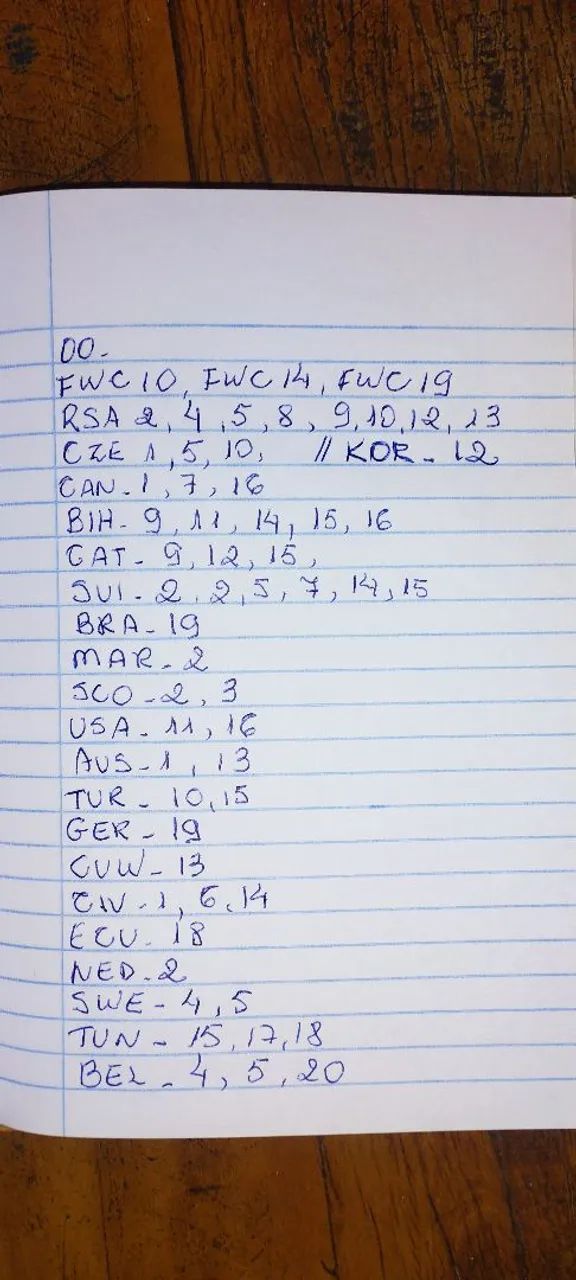 00-
FWC 10, FWC 14, FWC 19
RSA 2, 4, 5, 8, 9, 10, 12, 13
CZE 1, 5, 10, // KOR - 12
CAN - 1, 7, 16
BIH - 9, 11, 14, 15, 16
CAT - 9, 12, 15,
SUI - 2, 2, 5, 7, 14, 15
BRA - 19
MAR - 2
SCO - 2, 3
USA - 11, 16
AUS - 1, 13
TUR - 10, 15
GER - 19
CUW - 13
CIV - 1, 6, 14
ECU - 18
NED - 2
SWE - 4, 5
TUN - 15, 17, 18
BEL - 4, 5, 20